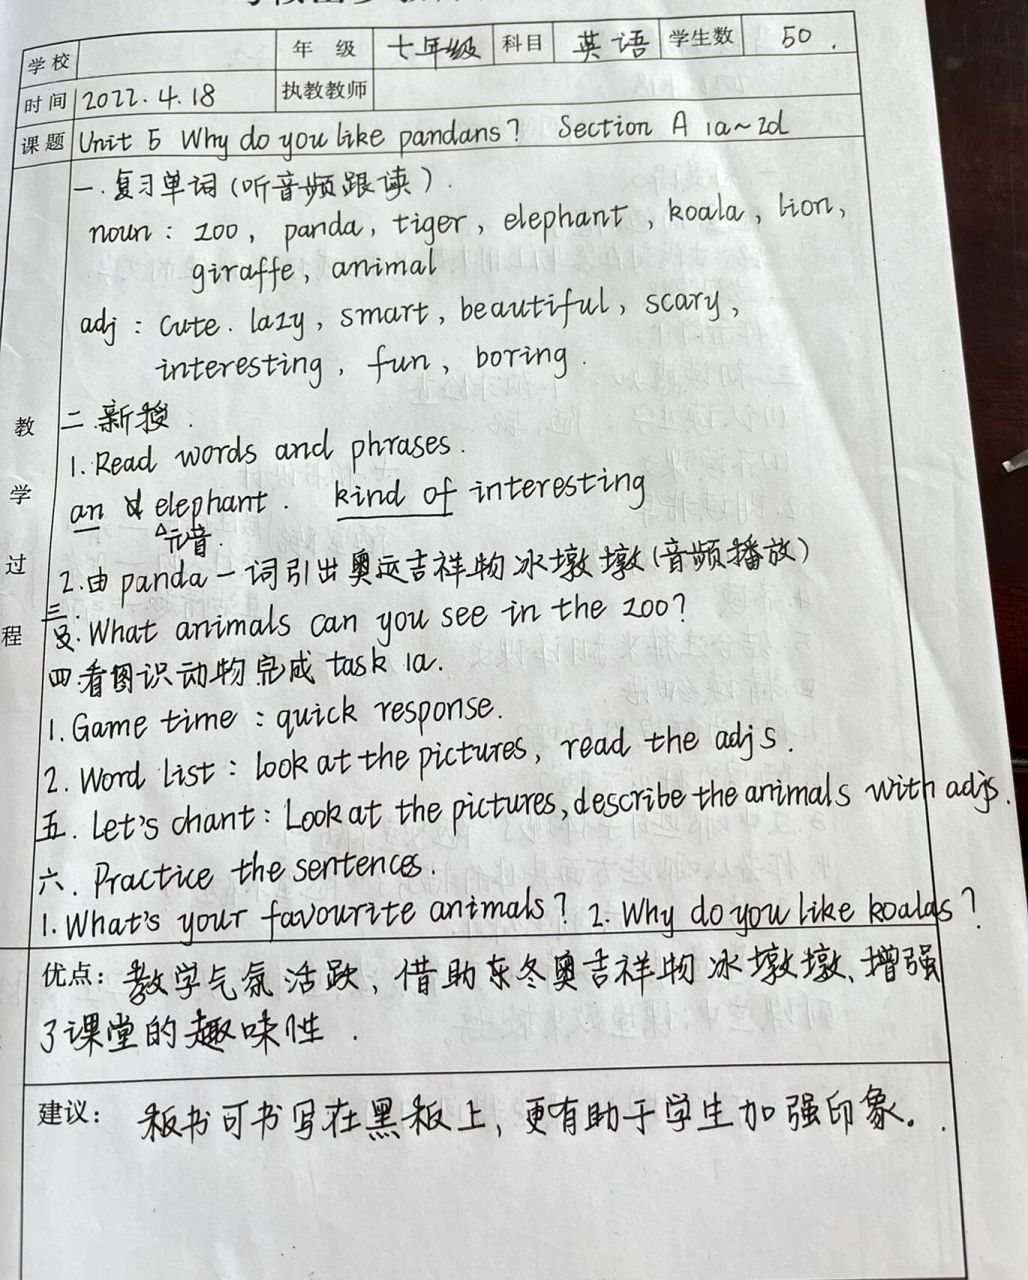 学校 年级 七年级 科目 英语 学生数 50.
时间 2022.4.18 执教教师
课题 Unit 5 Why do you like pandans? Section A 1a~2d
教学过程
一.复习单词(听音频跟读).
noun: zoo, panda, tiger, elephant, koala, lion,
giraffe, animal
adj: cute. lazy, smart, beautiful, scary,
interesting, fun, boring.
二.新授.
1.Read words and phrases.
an elephant. kind of interesting
元音.
2.由panda一词引出奥运吉祥物冰墩墩(音频播放)
三.What animals can you see in the zoo?
四.看图识动物完成task 1a.
1.Game time: quick response.
2. Word List: look at the pictures, read the adjs.
五. Let's chant: Look at the pictures, describe the animals with adjs.
六. Practice the sentences.
1. What's your favourite animals? 2. Why do you like koalas?
优点: 教学气氛活跃, 借助东冬奥吉祥物冰墩墩、增强
了课堂的趣味性.
建议: 板书可书写在黑板上, 更有助于学生加强印象。